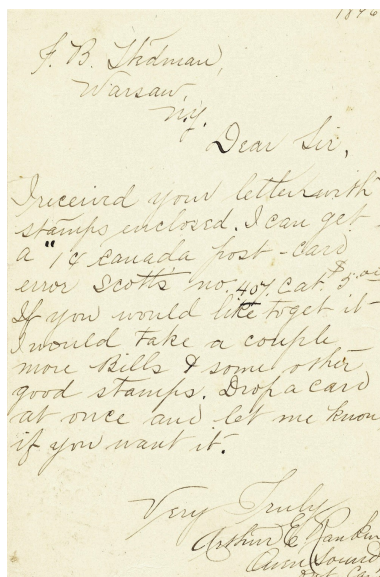 1896
F. B. Stidman,
Warsaw,
N.Y.
Dear Sir,
I received your letter with
stamps enclosed. I can get
a "1¢ Canada post-card
error Scott's no. 407. cat. $5.00
If you would like to get it
I would take a couple
more Bills & some other
good stamps. Drop a card
at once and let me know
if you want it.
Very Truly
Arthur E. Rankin
Owen Sound
Ont. Can.